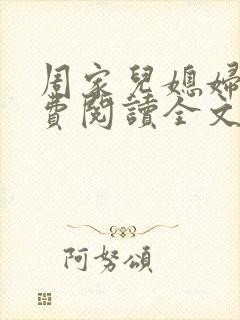 周家兒媳婦
費閱讀全文
阿努頌